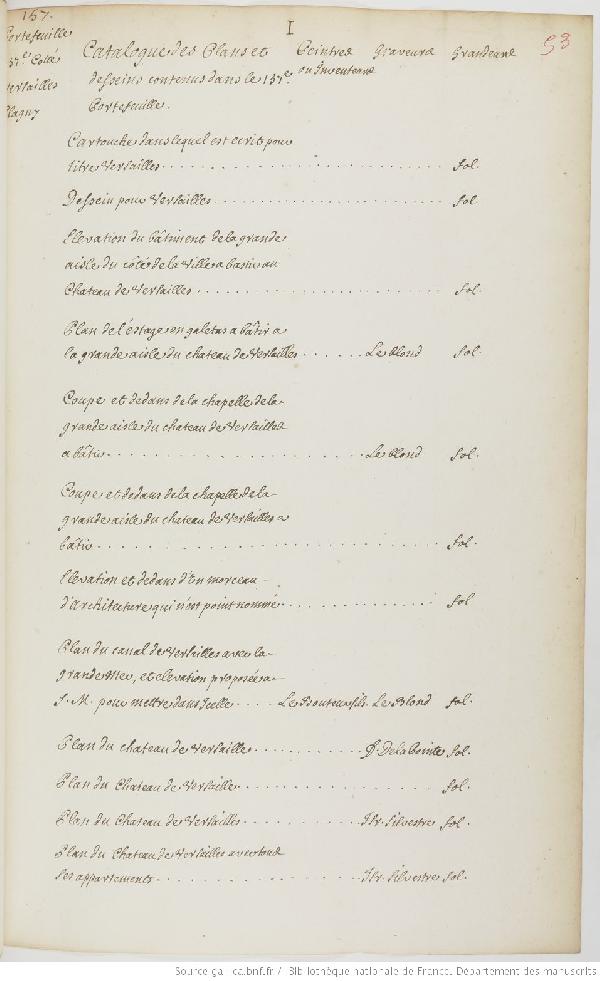 157.
Portefeuille
157.e Costé
Versailles
Clagny
I
53
Catalogue des Plans et
desseins contenus dans le 157.e
Portefeuille.
Peintres
ou Inventeurs
Graveurs
Grandeurs
Cartouche dans lequel est ecrit pour
titre Versailles fol.
Dessein pour Versailles fol
Elevation du bâtiment de la grande
aisle du côté de la Ville a bastir au
Chateau de Versailles fol.
Plan de l'estage en galetas a bâtir a
la grande aisle du chateau de Versailles Le Blond fol.
Coupe et dedans de la chapelle de la
grande aisle du chateau de Versailles
a bâtir Le Blond fol.
Coupe et dedans de la chapelle de la
grande aisle du chateau de Versailles a
bâtir fol.
Elevation et dedans d'Un morceau
d'architecture qui n'est point nommé fol
Plan du canal de Versailles avec la
grande Nev, et elevation proposée a
S. M. pour mettre dans Icelle Le Bouteux fils. Le Blond fol.
Plan du chateau de Versailles F. Delapointe fol.
Plan du Chateau de Versaille fol.
Plan du Chateau de Versailles Isr. Silvestre fol.
Plan du Chateau de Versailles avec tous
ses appartements Isr. Silvestre fol.
Source gallica.bnf.fr / Bibliothèque nationale de France. Département des manuscrits.